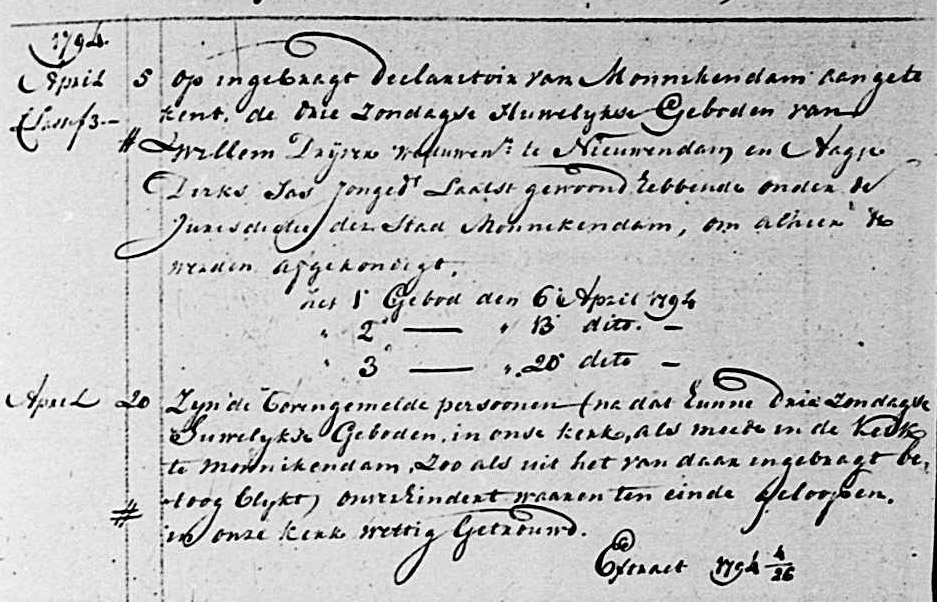 1794.
April 5 Op ingebragt Declaratoir van Monnikendam aangete
Classis 3.- kent, de drie Zondagse Huwelykse Geboden van
# Willem Dryver Weduwenr. te Nieuwendam en Aagje
Dirks Jas Jongedr. Laatst gewoond hebbende onder de
Jurisdictie der Stad Monnikendam, om alhier te
werden afgekondigt.
het 1e Gebod den 6e April 1794
" 2e —— " 13 dito. —
" 3e —— " 20 dito —
April 20 Zyn de bovengemelde persoonen (na dat hunne drie Zondagse
Huwelykse Geboden, in onse kerk, als meede in de Kerk
te Monnikendam, Zoo als uit het van daar ingebragt be,
toog blykt) onverhindert waaren ten einde geloopen,
# in onze kerk wettig Getrouwd.
Extract 1794 4/26